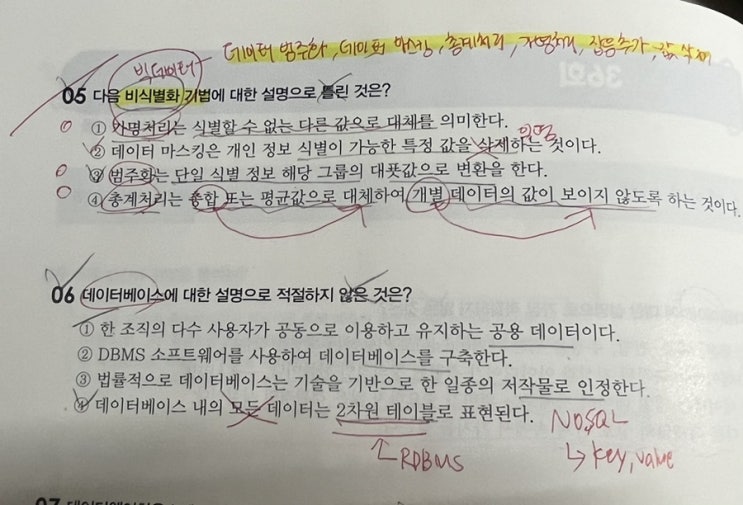 데이터 범주화, 데이터 마스킹, 총계처리, 가명처리, 잡음추가, 값 삭제
빅데이터
05 다음 비식별화 기법에 대한 설명으로 틀린 것은?
① 가명처리는 식별할 수 없는 다른 값으로 대체를 의미한다.
익명
② 데이터 마스킹은 개인 정보 식별이 가능한 특정 값을 삭제하는 것이다.
③ 범주화는 단일 식별 정보 해당 그룹의 대푯값으로 변환을 한다.
④ 총계처리는 총합 또는 평균값으로 대체하여 개별 데이터의 값이 보이지 않도록 하는 것이다.
06 데이터베이스에 대한 설명으로 적절하지 않은 것은?
① 한 조직의 다수 사용자가 공동으로 이용하고 유지하는 공용 데이터이다.
② DBMS 소프트웨어를 사용하여 데이터베이스를 구축한다.
③ 법률적으로 데이터베이스는 기술을 기반으로 한 일종의 저작물로 인정한다.
④ 데이터베이스 내의 모든 데이터는 2차원 테이블로 표현된다.
NOSQL
RDBMS
↳ key, value
07